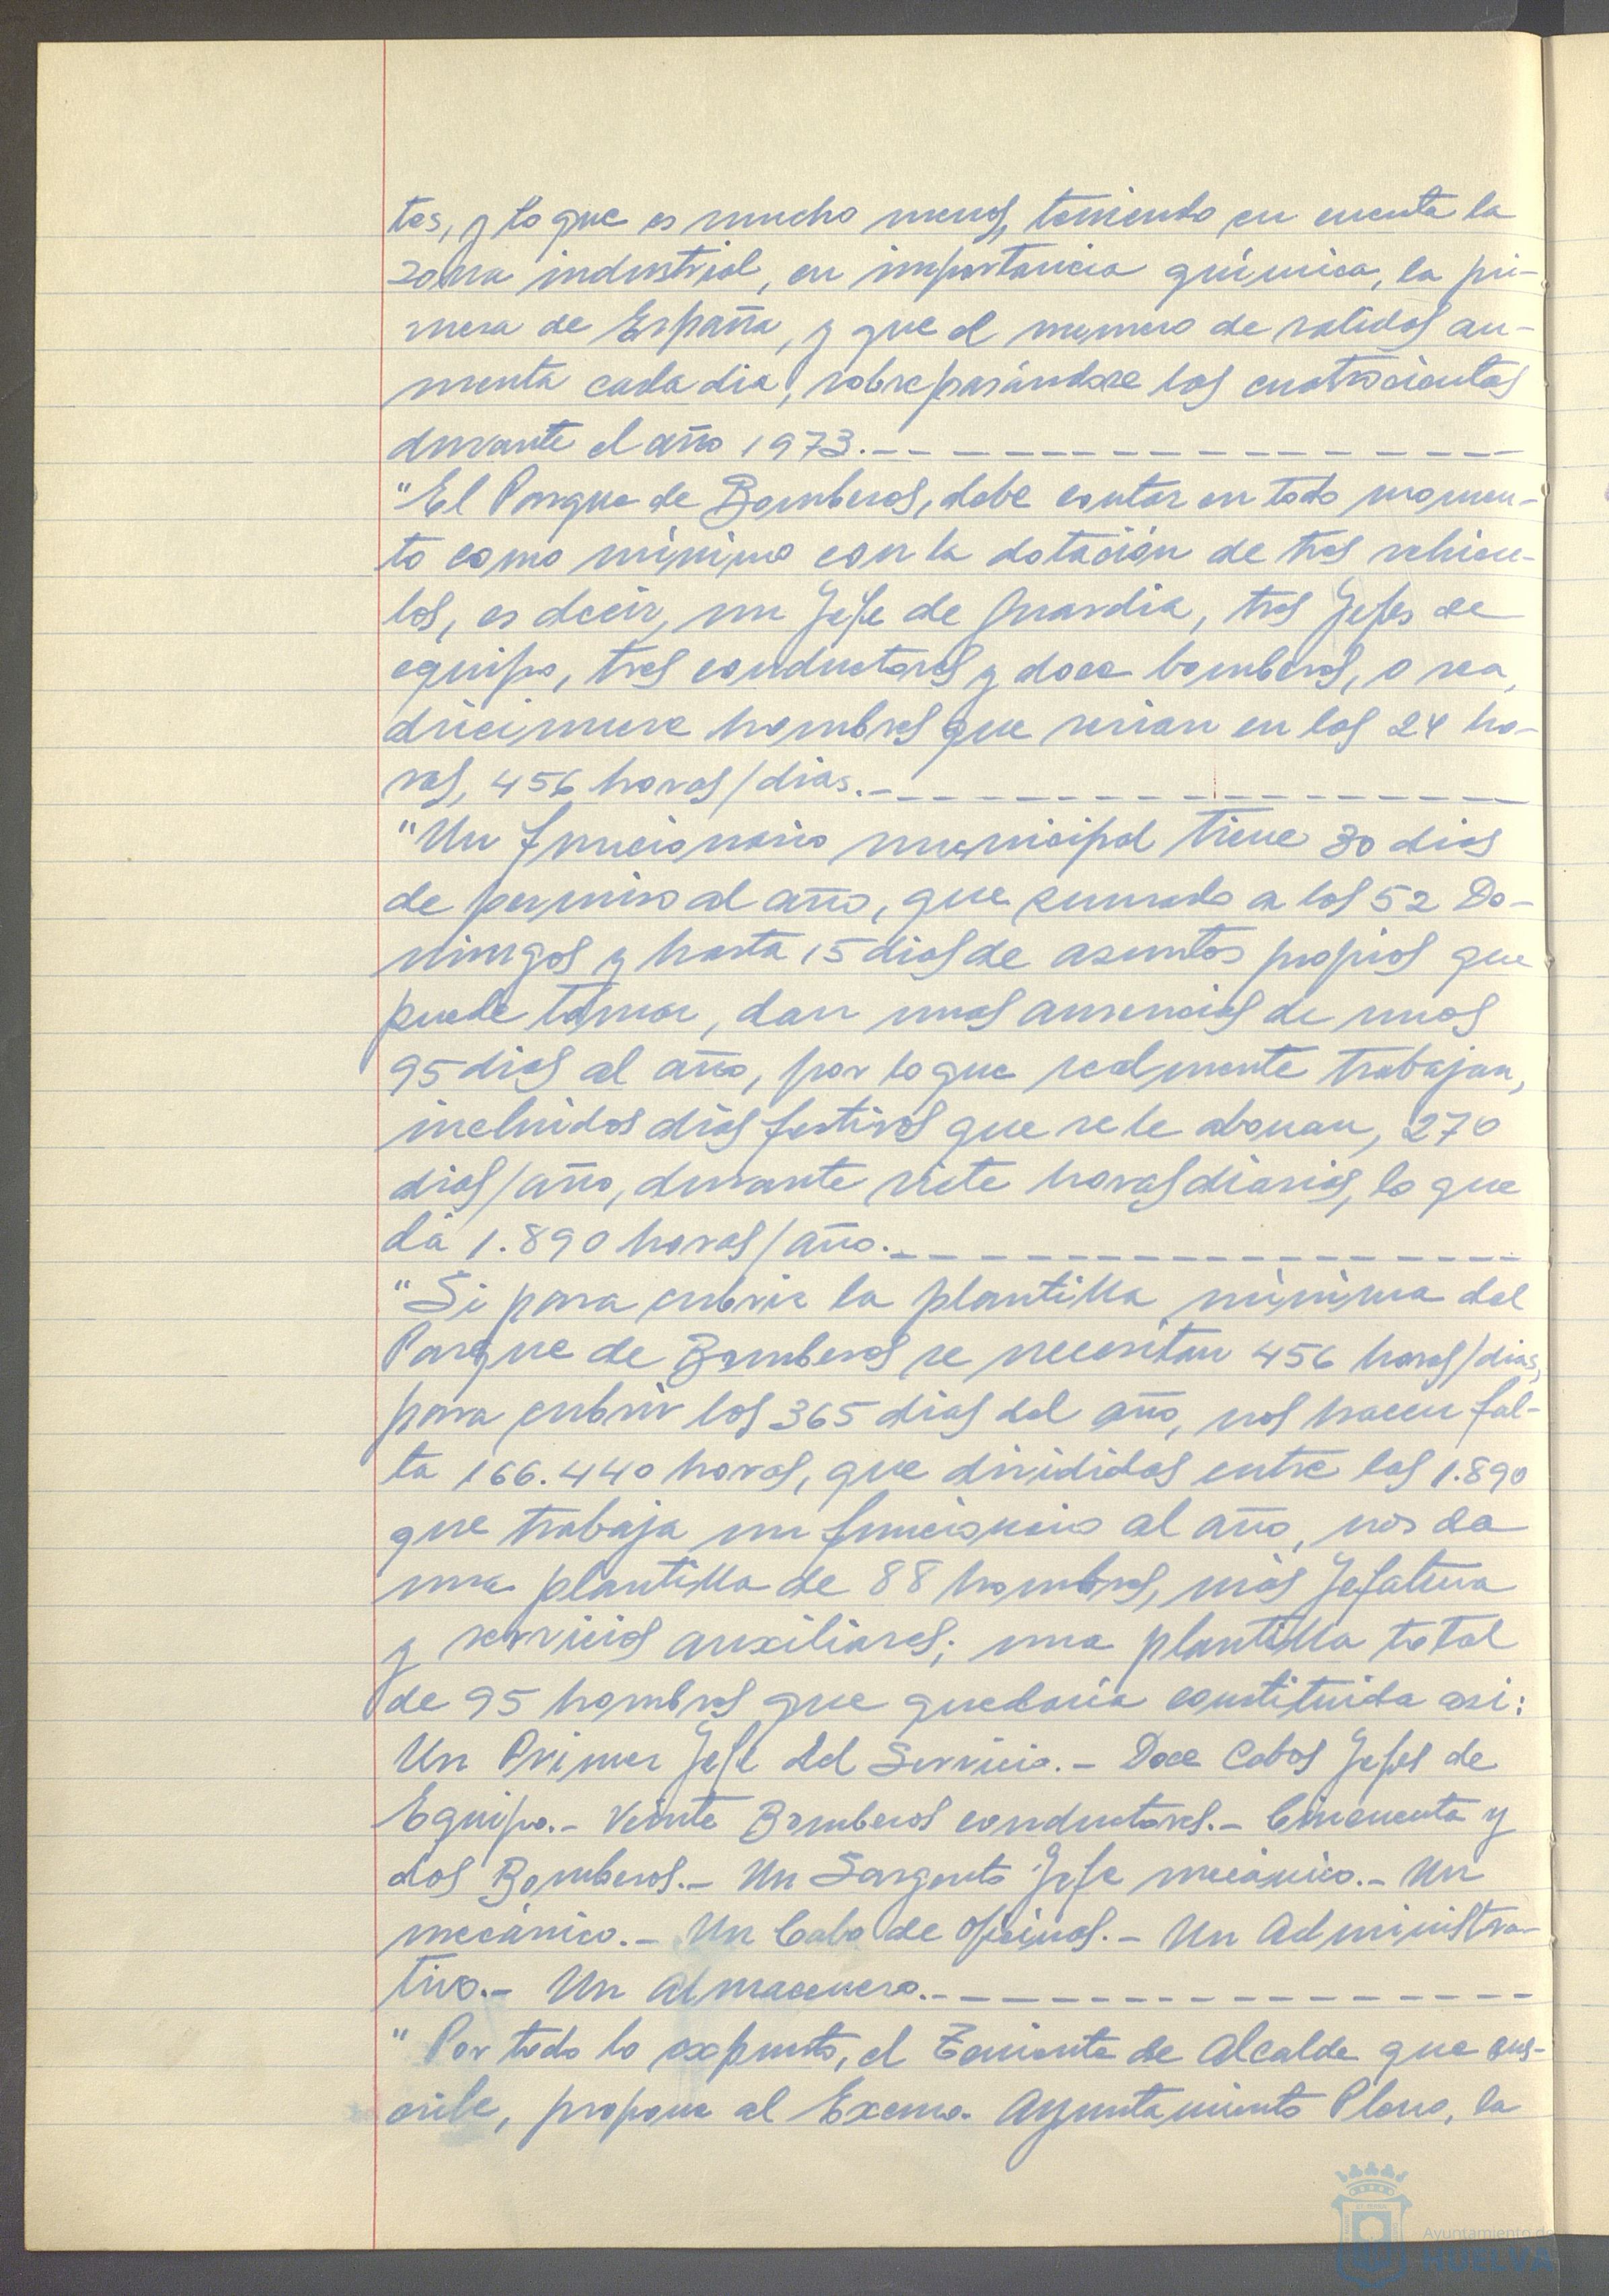 tes, y lo que es mucho menos, teniendo en cuenta la
zona industrial, en importancia química, la pri-
mera de España, y que el numero de salidas au-
menta cada dia, sobrepasándose las cuatrocientas
durante el año 1973.-
"El Parque de Bomberos, debe contar en todo momen-
to como mínimo con la dotación de tres vehicu-
los, es decir, un Jefe de Guardia, tres Jefes de
equipo, tres conductores y doce bomberos, o sea,
diecinueve hombres que serian en las 24 ho-
ras, 456 horas/dias.-
"Un funcionario municipal tiene 30 dias
de permiso al año, que sumado a los 52 Do-
mingos y hasta 15 dias de asuntos propios que
puede tomar, dan unas ausencias de unos
95 dias al año, por lo que realmente trabajan,
incluidos dias festivos que se le abonan, 270
dias/año, durante siete horas diarias, lo que
da 1.890 horas/año.-
"Si para cubrir la plantilla mínima del
Parque de Bomberos se necesitan 456 horas/dias,
para cubrir los 365 dias del año, nos hacen fal-
ta 166.440 horas, que divididas entre las 1.890
que trabaja un funcionario al año, nos da
una plantilla de 88 hombres, más Jefatura
y servicios auxiliares; una plantilla total
de 95 hombres que quedaria constituida asi:
Un Primer Jefe del Servicio.- Doce Cabos Jefes de
Equipo.- Veinte Bomberos conductores.- Cincuenta y
dos Bomberos.- Un Sargento Jefe mecánico.- Un
mecánico.- Un Cabo de oficinas.- Un Administra-
tivo.- Un Almacenero.-
"Por todo lo expuesto, el Teniente de Alcalde que sus-
cribe, propone al Excmo. Ayuntamiento Pleno, la
Ayuntamiento de
HUELVA